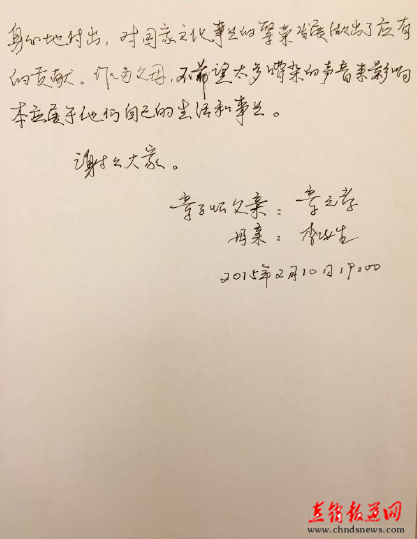 身心地付出，对国家文化事业的繁荣发展做出了应有
的贡献。作为父母，不希望太多嘈杂的声音来影响
本应属于他们自己的生活和事业。
谢谢大家。
章子怡父亲：章元孝
母亲：李涿生
2015年2月10日19:00
直销报道网
www.chndsnews.com